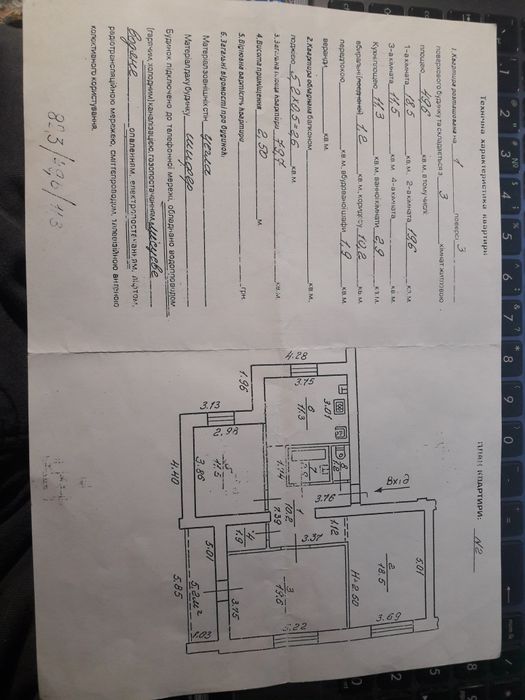 Технічна характеристика квартири
1. Квартира розташована на 1 поверсі 3
поверхового будинку та складається з 3 кімнат житловою
площею 49,6 кв.м, в тому числі:
1-а кімната 18,5 кв.м, 2-а кімната 19,6 кв.м.
3-я кімната 11,5 кв.м, 4-а кімната кв.м.
Кухні площею 11,3 кв.м, ванної кімнати 2,9 кв.м.
вбиральні 1,2 кв.м, коридору 10,2 кв.м.
передпокою кв.м, вбудованої шафи 1,9 кв.м.
веранди кв.м.
2. Квартира обладнана балконом
лоджією 5,2х0,5=2,6 кв.м.
3. Загальна площа квартири кв.м.
4. Висота приміщення 2,50 м
5. Відновна вартість квартири грн.
6. Загальні відомості про будинок:
Матеріал зовнішніх стін
Матеріал даху будинку
Будинок підключено до телефонної мережі, обладнано водопроводом
(гарячим, холодним) каналізацією, газопостачанням місцеве
опаленням, електропостачанням, ліфтом,
радіотрансляційною мережею, сміттєпроводом, телевізійною антеною
колективного користування.
80,3/49,6/11.3
ПЛАН КВАРТИРИ: N2
4.28
1.96
3.15
6
11.3
3.01
3.13
2.98
3.86
5
11.5
4.40
1.74
7
2.9
8
1.2
Вхід
3.76
1
10.2
7.39
1.12
3.37
4
1.9
2
18.5
5.01
3.69
H=2.50
3
19.6
3.75
5.22
5.01
5.2м²
5.85
1.03